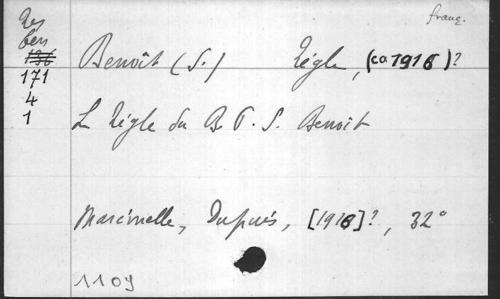 franç.
Res
ben
136
171
4
1
Benoît (S.) Règle, (ca 1916)?
L Règle du B P. S. Benoît
Marcinelle, Dupuis, [1916]?, 32°
1109